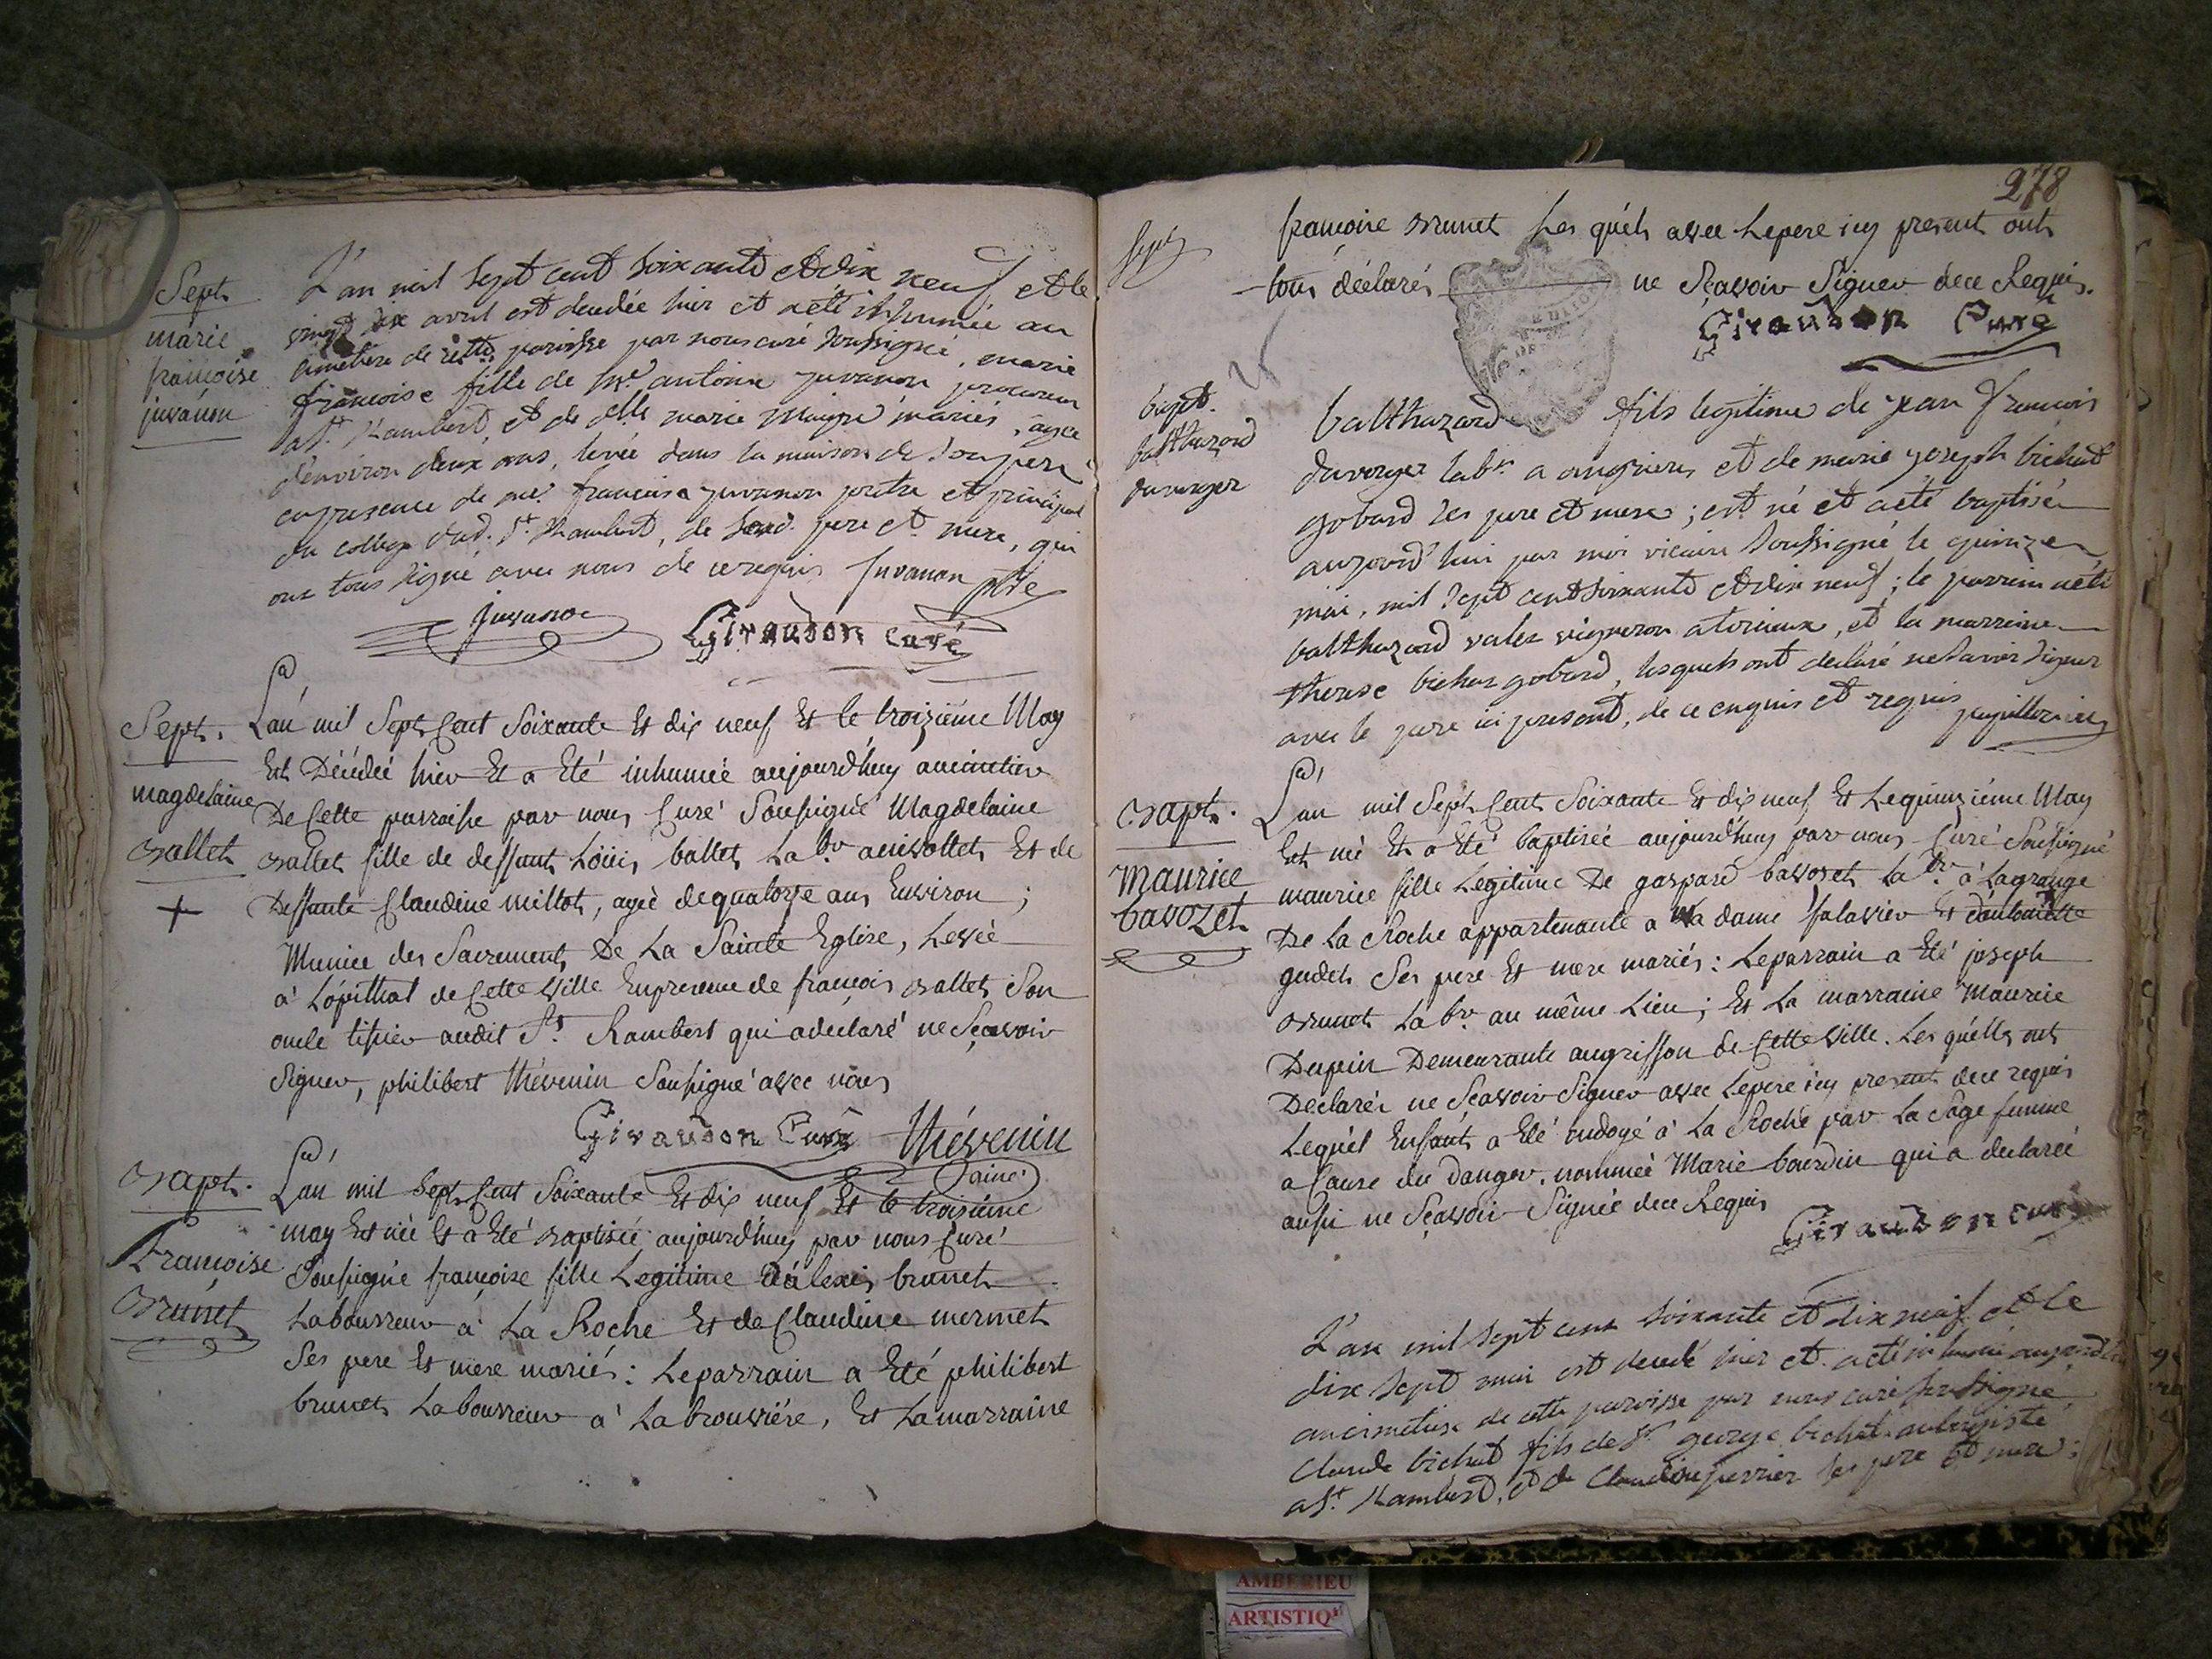 Sept
marie
françoise
juvanon
L'an mil sept cent soixante et dix neuf, et le
vingt six avril est decedée hier et a été inhumée au
cimetiere de cette paroisse par nous curé soussigné, marie
françoise fille de Me antoine juvanon procureur
a St Rambert, et de dlle marie maigre mariés, agée
d'environ deux ans, levée dans la maison de son pere
en presence de me françois juvanon prêtre et principal
du college dud. St Rambert, de sesd. pere et mere, qui
ont tous signé avec nous de ce requis Juvanon ptre
juvanon Giraudon Curé
Sept.
magdelaine
Ballet
+
Lan mil Sept Cent Soixante Et dix neuf Et le troizième May
Est Décédée hier Et a Eté inhumée aujourd'huy au cimetier
De Cette parroisse par nous Curé Soussigné Magdelaine
Ballet fille de deffunt Loüis ballet Labr Et de
Deffunte Claudine millot, ageé de quatorze ans Environ ;
Munice des Sacrements De La Sainte Eglise, Leveé
à Lópithal de Cette Ville En presence de françois Ballet Son
oncle tissier audit St. Rambert qui a declaré ne Sçavoir
Signer, philibert thévenin Soussigné avec nous
Giraudon Curé Thévenin
Lainé
Bapt.
Françoise
Brunet
Lan mil Sept Cent Soixante Et dix neuf Et le troisième
may Est née Et a Eté Baptisée aujourd'huy par nous Curé
Soussigné françoise fille Legitime d'alexis brunet
Laboureur à La Roche Et de Claudine mermet
Ses pere Et mere mariés : Le parrain a Eté philibert
brunet Laboureur à Labrouviére, Et La marraine
278
Sept
françoise Brunet Les quels avec Le pere icy present ont
tous déclarés ne Sçavoir Signer de ce Requis.
Giraudon Curé
bapt.
balthazard
duverger
balthazard fils legitime de jean françois
duverger labr a angrieres et de marie joseph bichat
gobard ses pere et mere ; est né et a été baptisé
aujourd'hui par moi vicaire soussigné le quinze
mai, mil sept cent soixante et dix neuf ; le parrein a été
balthazard valez vigneron a torcieux, et la marreine
therese bichat gobard, lesquels ont declaré ne savoir signer
avec le pere ici present, de ce enquis et requis
Bapt.
Maurice
bavozet
Lan mil Sept Cent Soixante Et dix neuf Et Le quinzième May
Est né Et a Eté baptiseé aujourd'huy par nous Curé Soussigné
maurice fille Legitime De gaspard bavozet Labr à Lagrange
De La Roche appartenante a Madame Et d'antoinette
gudet Ses pere Et mere mariés : Le parrain a Eté joseph
Brunet Labr au même Lieu ; Et La marraine Maurice
Dupin Demeurante augrisson de Cette Ville. Les quélls ont
Declarés ne Sçavoir Signer avec Le pere icy present de ce requis
Lequel Enfant a Eté ondogé à La Roche par La Sage femme
a Cause du danger. nommée Marie bourdin qui a declareé
aussi ne Sçavoir Signée de ce Requis
Giraudon Curé
L'an mil sept cent soixante et dix neuf et le
dix sept mai est decedé hier et a été inhumé aujourd'hui
au cimetiere de cette paroisse par nous curé soussigné
claude bichat fils de Sr george bichat aubergiste
a St Rambert, et de Claudine perrier ses pere et mere ;
AMBERIEU
ARTISTIQ